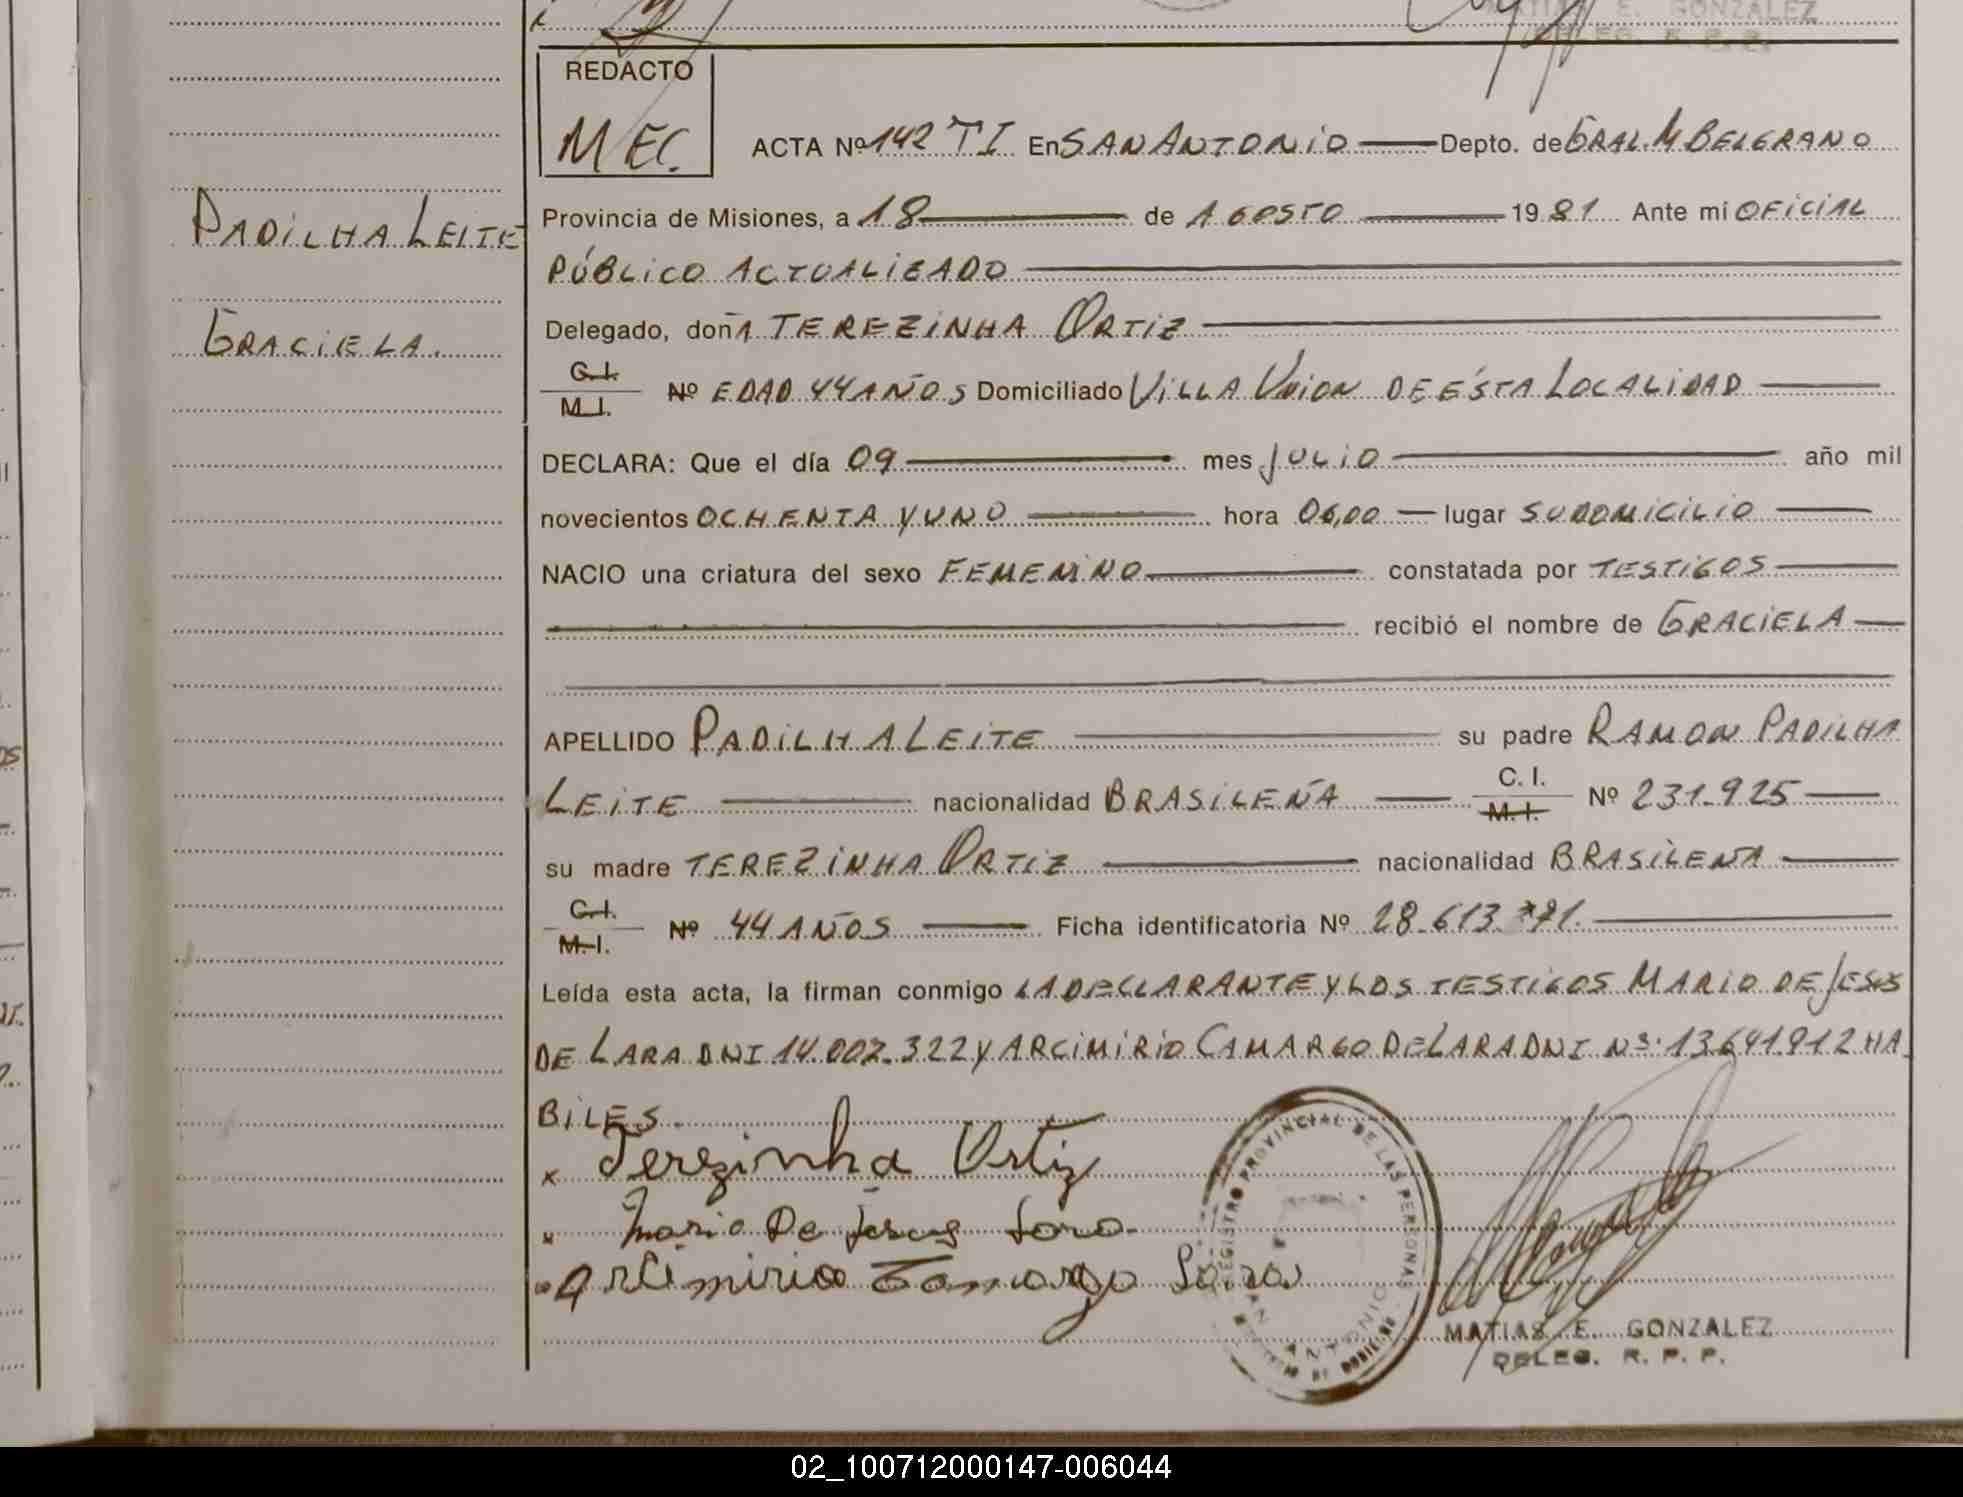 MATIAS E. GONZALEZ
DELEG. R. P. P.
REDACTO
MEC.
ACTA Nº 142 TI En SAN ANTONIO Depto. de GRAL. M BELGRANO
PADILHA LEITE
Provincia de Misiones, a 18 de AGOSTO 1981 Ante mi OFICIAL
PÚBLICO ACTUALIZADO
GRACIELA.
Delegado, doña TEREZINHA ORTIZ
C.I. M.I. Nº EDAD 44 AÑOS Domiciliado VILLA UNION DE ÉSTA LOCALIDAD
DECLARA: Que el día 09 mes JULIO año mil
novecientos OCHENTA Y UNO hora 06,00 lugar SU DOMICILIO
NACIO una criatura del sexo FEMENINO constatada por TESTIGOS
recibió el nombre de GRACIELA
APELLIDO PADILHA LEITE su padre RAMON PADILHA
LEITE nacionalidad BRASILEÑA C. I. M. I. Nº 231.925
su madre TEREZINHA ORTIZ nacionalidad BRASILEÑA
C.I. M.I. Nº 44 AÑOS Ficha identificatoria Nº 28.613.771.
Leída esta acta, la firman conmigo LA DECLARANTE Y LOS TESTIGOS MARIO DE JESUS
DE LARA DNI 14.007.322 Y ARCIMIRIO CAMARGO DE LARA DNI Nº 13.641.912 HA
BILES.
x Terezinha Ortiz
x Mario De Jesus Lara
Arcimirio Camargo Lara
REGISTRO PROVINCIAL DE LAS PERSONAS
SAN ANTONIO
MATIAS E. GONZALEZ
DELEG. R. P. P.
02_100712000147-006044